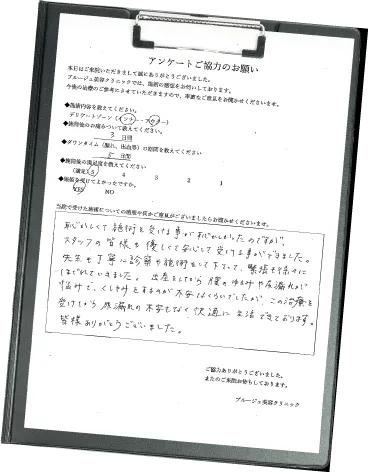 アンケートご協力のお願い
本日はご来院いただきまして誠にありがとうございました。
ブルージュ美容クリニックでは、施術の感想をお伺いしております。
今後の治療のご参考にさせていただきますので、率直なご意見をお聞かせくださいませ。
◆施術内容を教えてください。
デリケートゾーン(インナー・アウター)
◆施術後のお痛みついて教えてください。
3 日間
◆ダウンタイム(腫れ、出血等)の期間を教えてください
5 日間
◆施術後の満足度を教えてください
(満足) 5 4 3 2 1
◆施術を受けてよかったですか。
YES NO
当院で受けた施術についての感想や何かご意見がございましたらお聞かせくださいませ。
恥かしくて施術を受ける事が恥かしかったのですが、
スタッフの皆様も優しくて安心して受ける事ができました。
先生も丁寧に診察や施術をして下さって、緊張も徐々に
ほぐれていきました。出産をしてから膣のゆるみや尿漏れが
悩みで、くしゃみをするのが不安なくらいでしたが、この治療を
受けてから尿漏れの不安もなく快適に生活できております。
皆様ありがとうございました。
ご協力ありがとうございました。
またのご来院お待ちしております。
ブルージュ美容クリニック